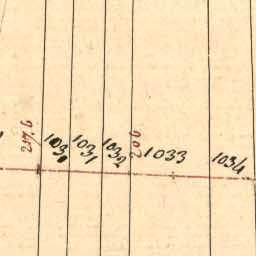 217.6
1030
1031
1032
206
1033
1034